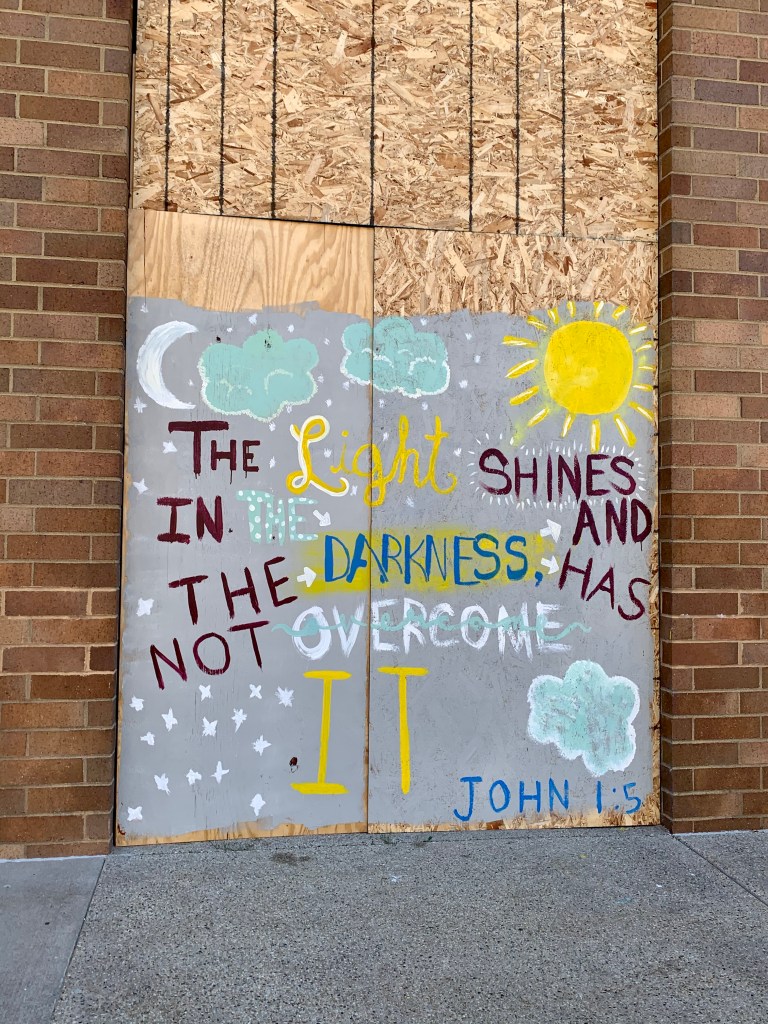 THE Light SHINES
IN THE DARKNESS, AND
THE HAS
NOT OVERCOME
IT
JOHN 1:5